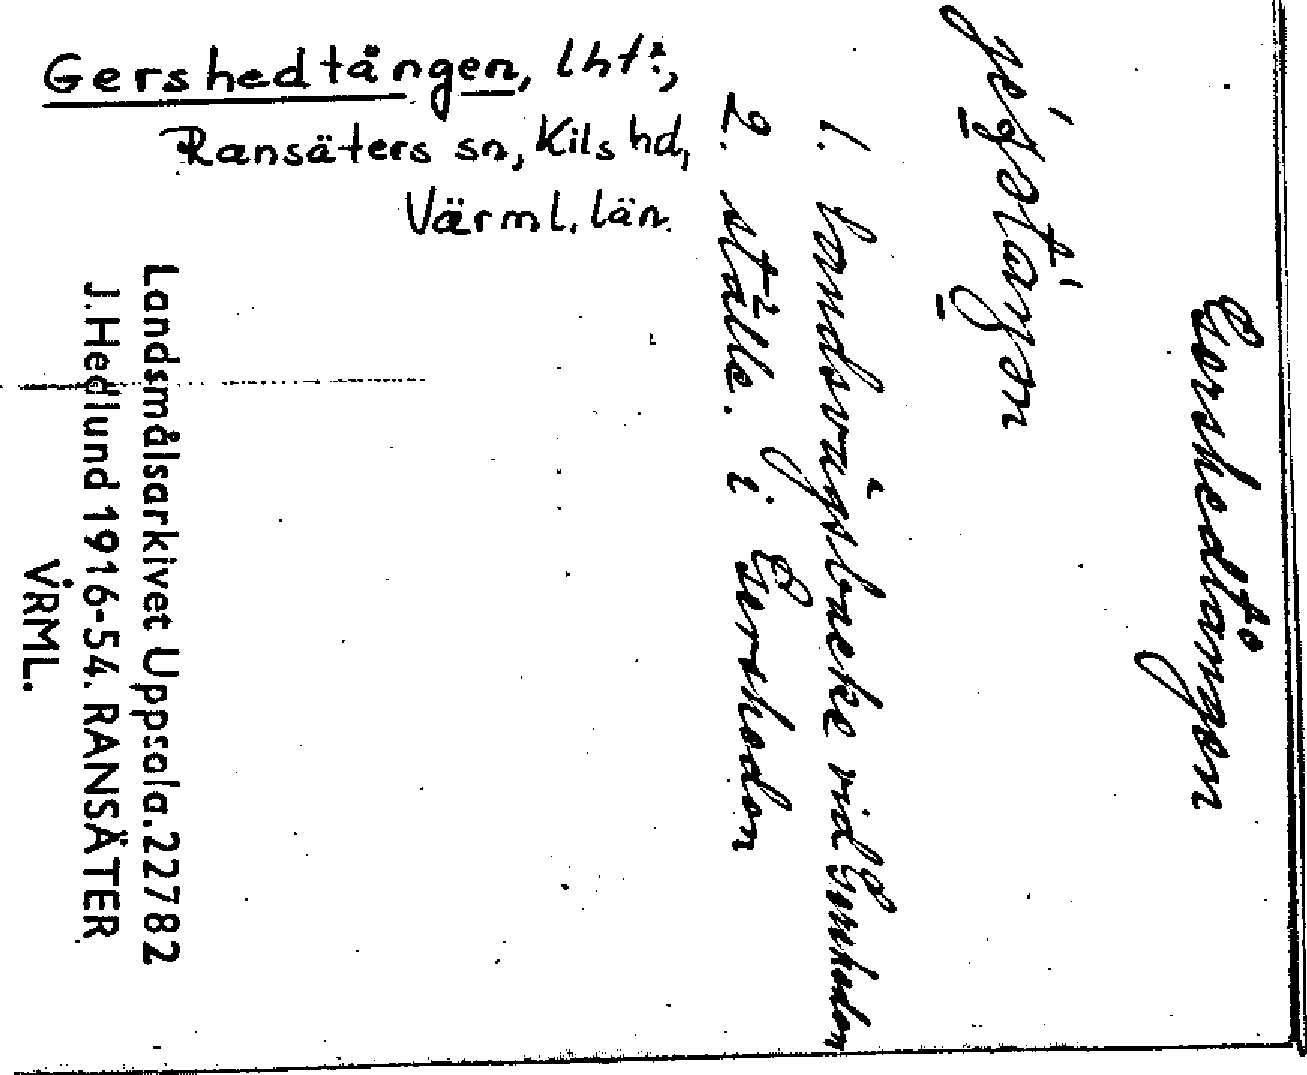 Gershedtången, lht?,
Ransäters sn, Kils hd,
Värml. län.
Gershedtången
1. landsvägsbacke vid Gersheden
2. ställe. i Gersheden
Landsmålsarkivet Uppsala. 22782
J. Hedlund 1916-54. RANSÄTER
VRML.